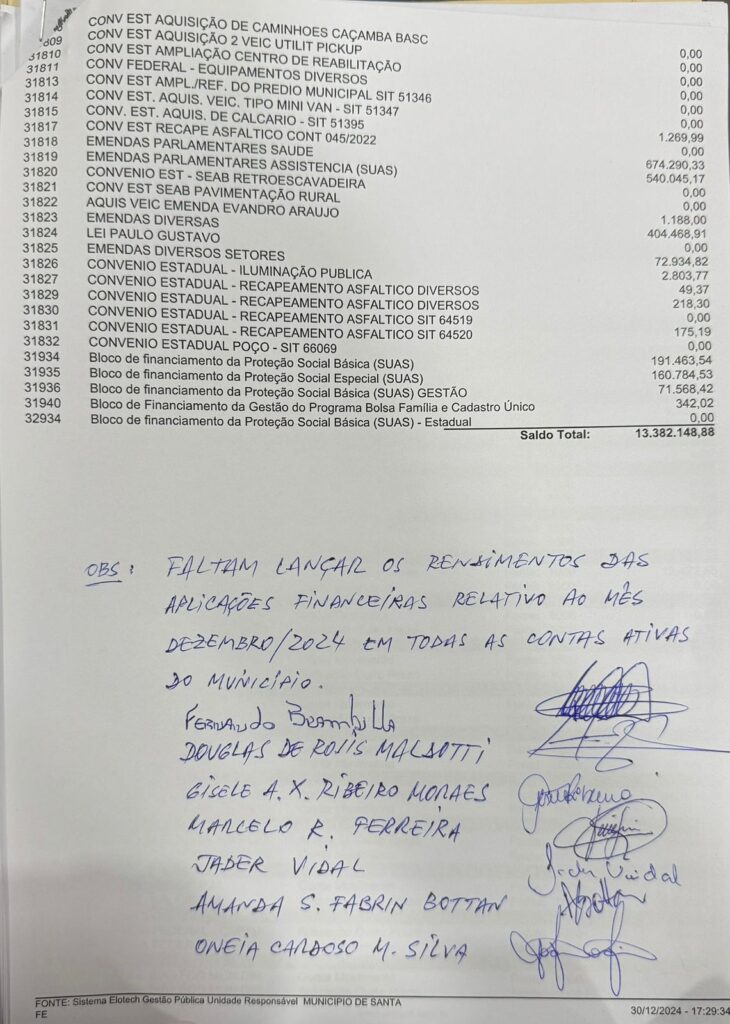 CONV EST AQUISIÇÃO DE CAMINHOES CAÇAMBA BASC
809 CONV EST AQUISIÇÃO 2 VEIC UTILIT PICKUP 0,00
31810 CONV EST AMPLIAÇÃO CENTRO DE REABILITAÇÃO 0,00
31811 CONV FEDERAL - EQUIPAMENTOS DIVERSOS 0,00
31813 CONV EST AMPL./REF. DO PREDIO MUNICIPAL SIT 51346 0,00
31814 CONV EST. AQUIS. VEIC. TIPO MINI VAN - SIT 51347 0,00
31815 CONV. EST. AQUIS. DE CALCARIO - SIT 51395 0,00
31817 CONV EST RECAPE ASFALTICO CONT 045/2022 1.269,99
31818 EMENDAS PARLAMENTARES SAUDE 0,00
31819 EMENDAS PARLAMENTARES ASSISTENCIA (SUAS) 674.290,33
31820 CONVENIO EST - SEAB RETROESCAVADEIRA 540.045,17
31821 CONV EST SEAB PAVIMENTAÇÃO RURAL 0,00
31822 AQUIS VEIC EMENDA EVANDRO ARAUJO 0,00
31823 EMENDAS DIVERSAS 1.188,00
31824 LEI PAULO GUSTAVO 404.468,91
31825 EMENDAS DIVERSOS SETORES 0,00
31826 CONVENIO ESTADUAL - ILUMINAÇÃO PUBLICA 72.934,82
31827 CONVENIO ESTADUAL - RECAPEAMENTO ASFALTICO DIVERSOS 2.803,77
31829 CONVENIO ESTADUAL - RECAPEAMENTO ASFALTICO DIVERSOS 49,37
31830 CONVENIO ESTADUAL - RECAPEAMENTO ASFALTICO SIT 64519 218,30
31831 CONVENIO ESTADUAL - RECAPEAMENTO ASFALTICO SIT 64520 0,00
31832 CONVENIO ESTADUAL POÇO - SIT 66069 175,19
31934 Bloco de financiamento da Proteção Social Básica (SUAS) 0,00
31935 Bloco de financiamento da Proteção Social Especial (SUAS) 191.463,54
31936 Bloco de financiamento da Proteção Social Básica (SUAS) GESTÃO 160.784,53
31940 Bloco de Financiamento da Gestão do Programa Bolsa Família e Cadastro Único 71.568,42
32934 Bloco de financiamento da Proteção Social Básica (SUAS) - Estadual 342,02
0,00
Saldo Total: 13.382.148,88
OBS: FALTAM LANÇAR OS RENDIMENTOS DAS
APLICAÇÕES FINANCEIRAS RELATIVO AO MÊS
DEZEMBRO/2024 EM TODAS AS CONTAS ATIVAS
DO MUNICÍPIO.
FERNANDO BRAMBILLA
DOUGLAS DE ROSIS MALSOTTI
GISELE A. X. RIBEIRO MORAES
MARCELO R. FERREIRA
JADER VIDAL Jader Vidal
AMANDA S. FABRIN BOTTAN
ONEIA CARDOSO M. SILVA
FONTE: Sistema Elotech Gestão Pública Unidade Responsável MUNICIPIO DE SANTA
FE
30/12/2024 - 17:29:34